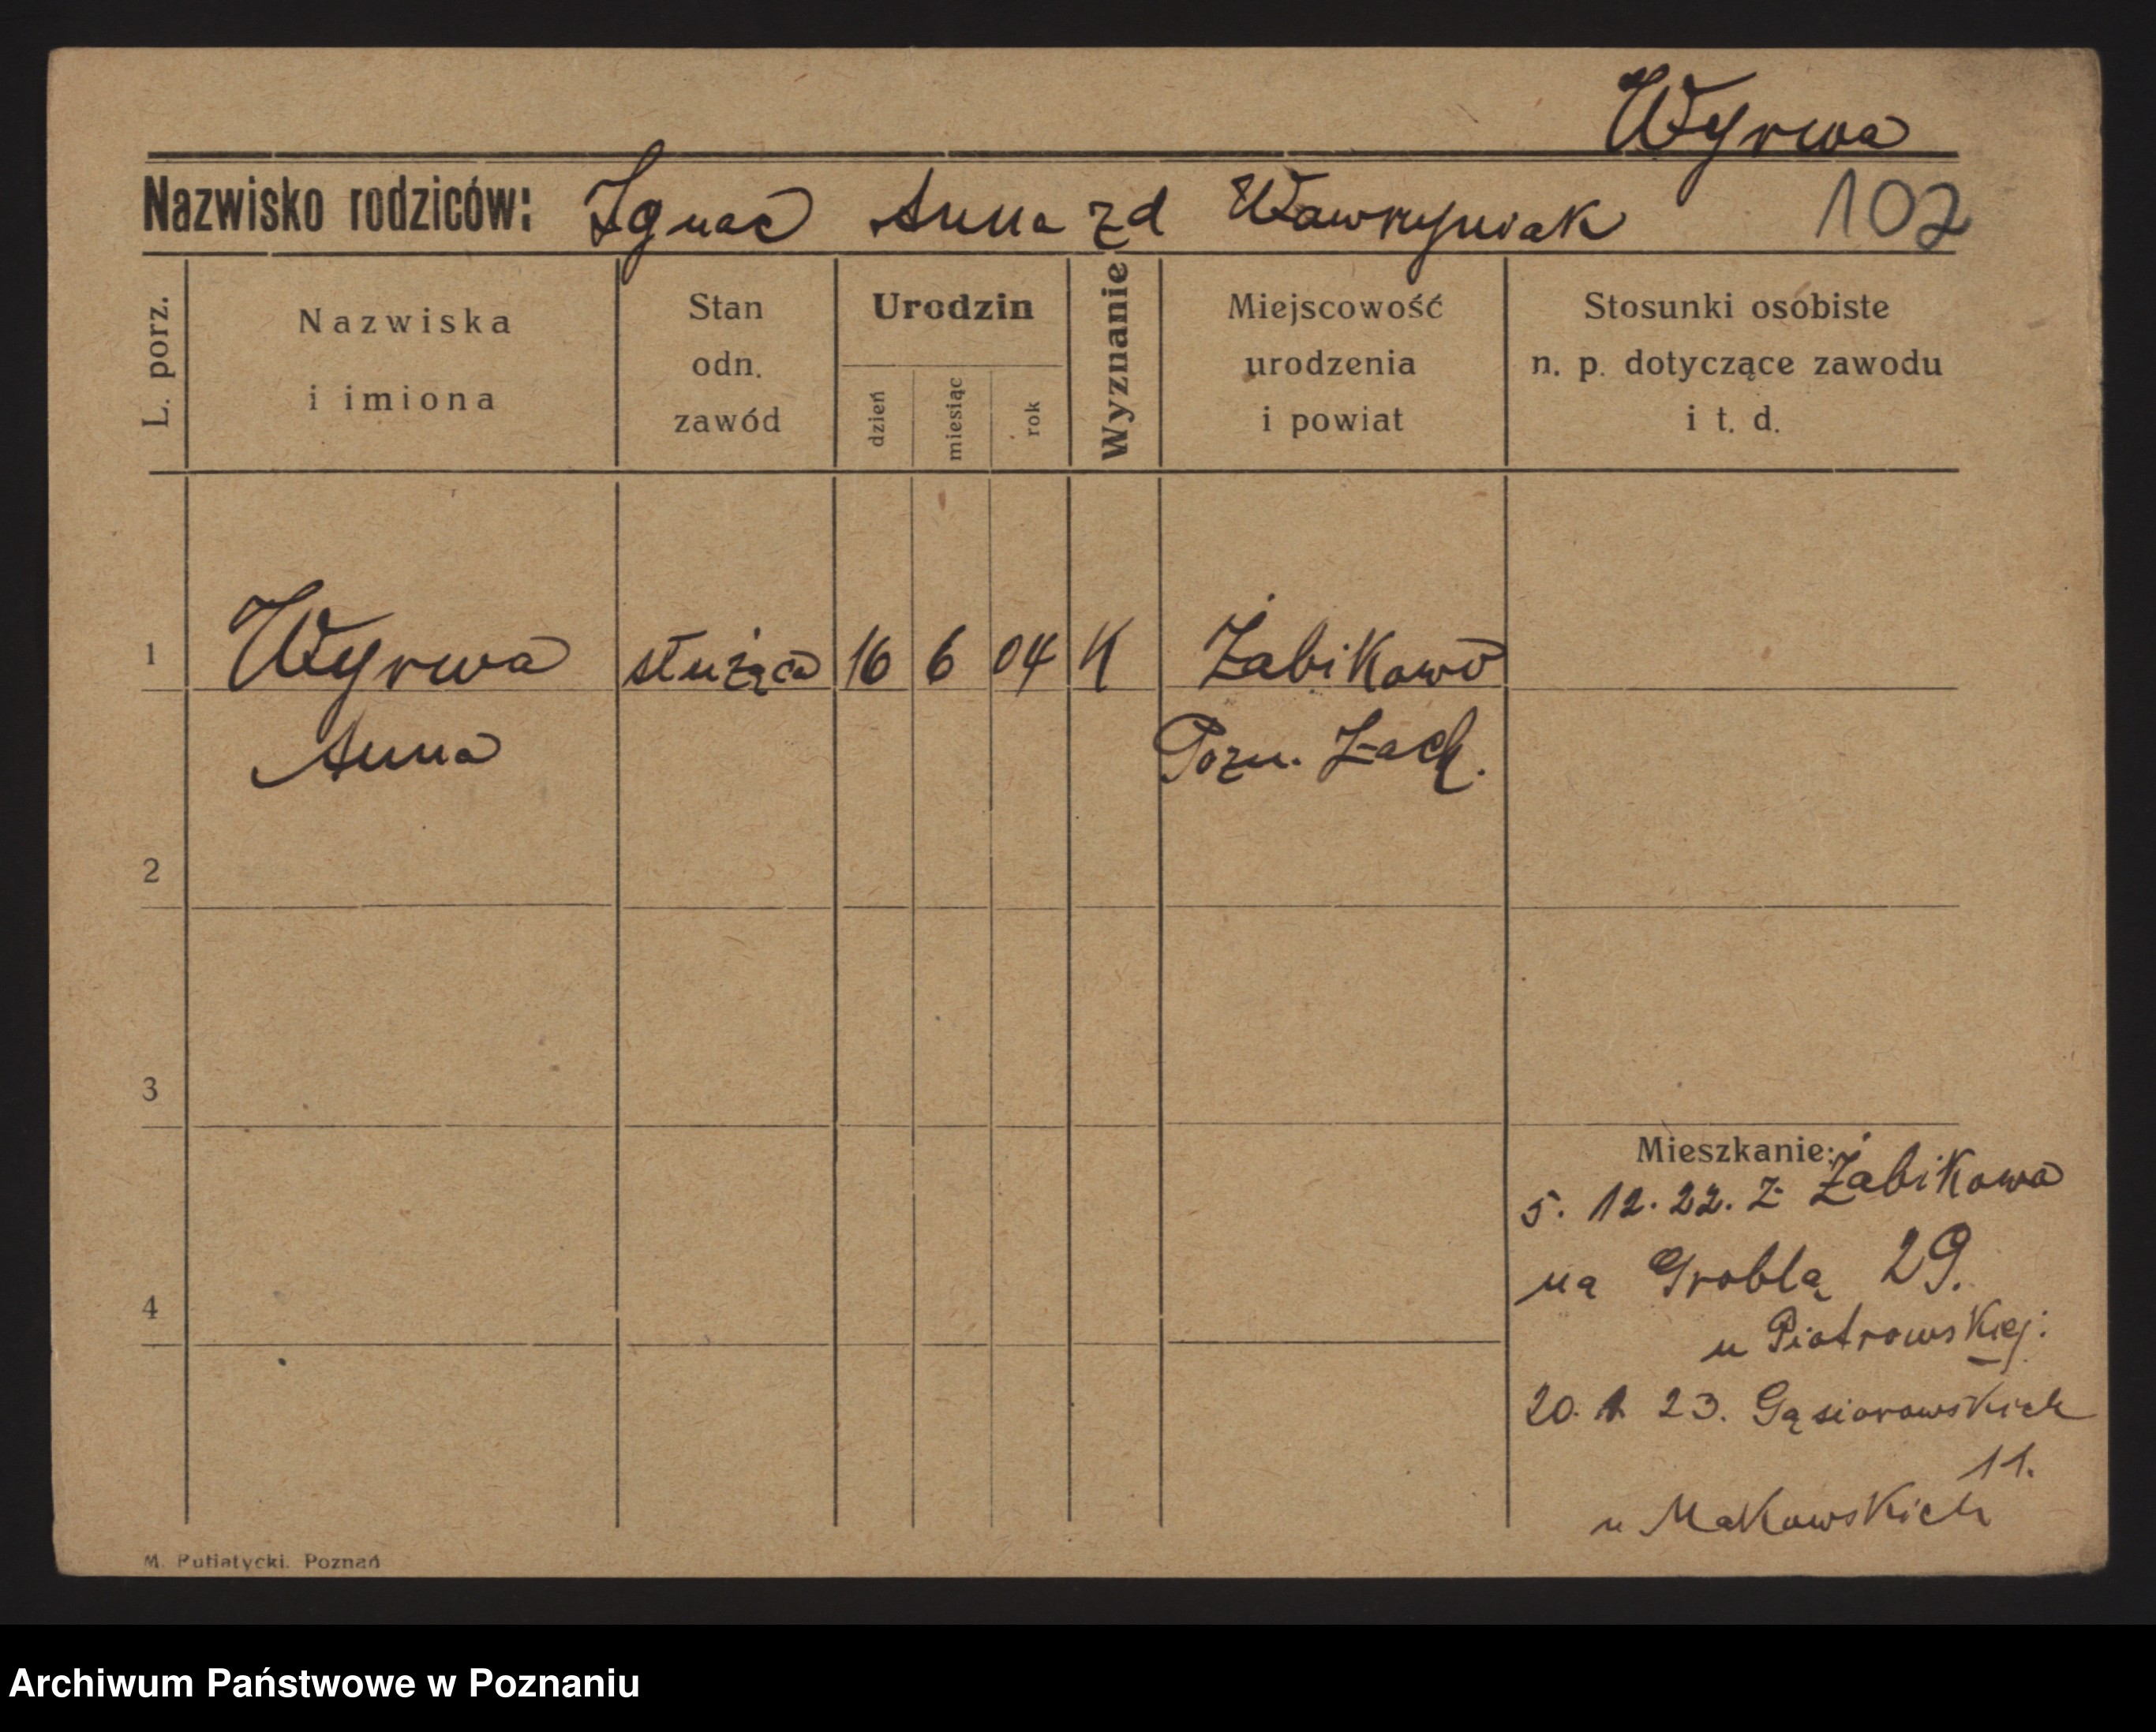 Wyrwa
Nazwisko rodziców: Ignac Anna zd Wawrzyniak 102
L. porz.
Nazwiska
i imiona
Stan
odn.
zawód
Urodzin
dzień
miesiąc
rok
Wyznanie
Miejscowość
urodzenia
i powiat
Stosunki osobiste
n. p. dotyczące zawodu
i t. d.
1 Wyrwa służąca 16 6 04 K Żabikowo
Anna Pozn. Zach.
2
3
Mieszkanie:
5. 12. 22. z Żabikowa
na Groblą 29.
4
u Piotrowskiej.
20. 1 23. Gąsiorowskich
11.
u Makowskich
M. Putiatycki. Poznań
Archiwum Państwowe w Poznaniu